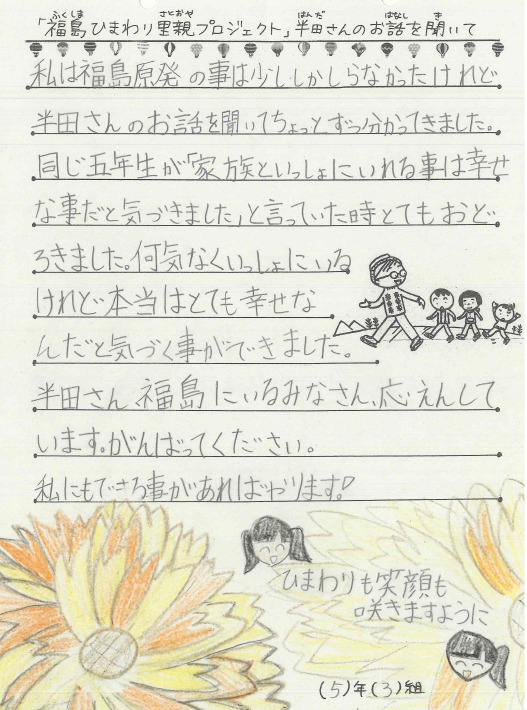 「福島ひまわり里親プロジェクト」半田さんのお話を聞いて
私は福島原発の事は少ししかしらなかったけれど
半田さんのお話を聞いてちょっとずつ分かってきました。
同じ五年生が「家族といっしょにいれる事は幸せ
な事だと気づきました」と言っていた時とてもおど
ろきました。何気なくいっしょにいる
けれど本当はとても幸せな
んだと気づく事ができました。
半田さん、福島にいるみなさん、応えんして
います。がんばってください。
私にもできる事があればやります!
ひまわりも笑顔も
咲きますように
(5)年(3)組